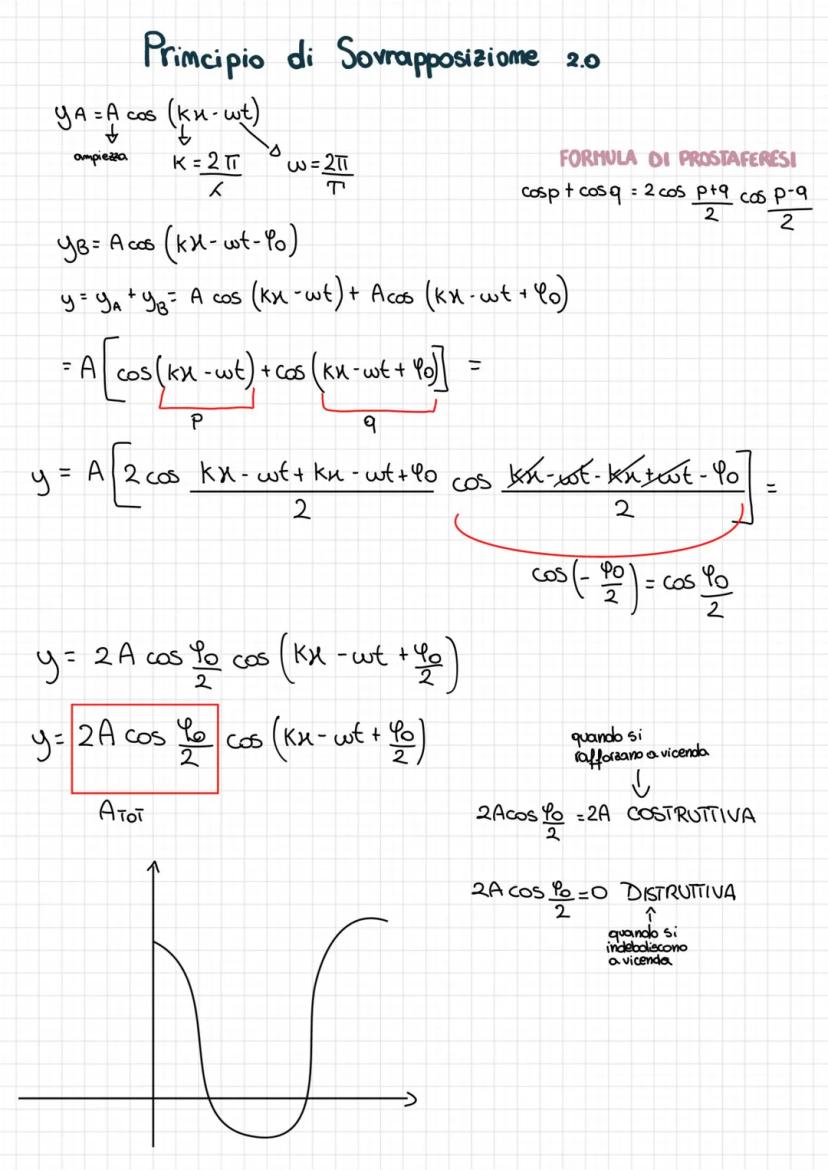 Principio di Sovrapposizione 2.0
yA = A cos (kx - ωt)
ampiezza
K = 2π/λ
ω = 2π/T
FORMULA DI PROSTAFERESI
cosp + cosq = 2 cos p+q/2 cos p-q/2
yB = A cos (kx - ωt - φ0)
y = yA + yB = A cos (kx - ωt) + A cos (kx - ωt + φ0)
= A [cos (kx - ωt) + cos (kx - ωt + φ0)] =
p q
y = A [2 cos kx - ωt + kx - ωt + φ0/2 cos kx - ωt - kx + ωt - φ0/2] =
cos (- φ0/2) = cos φ0/2
y = 2A cos φ0/2 cos (kx - ωt + φ0/2)
y = 2A cos φ0/2 cos (kx - ωt + φ0/2)
ATOT
quando si
rafforzano a vicenda
2A cos φ0/2 = 2A COSTRUTTIVA
2A cos φ0/2 = 0 DISTRUTTIVA
quando si
indeboliscono
a vicenda